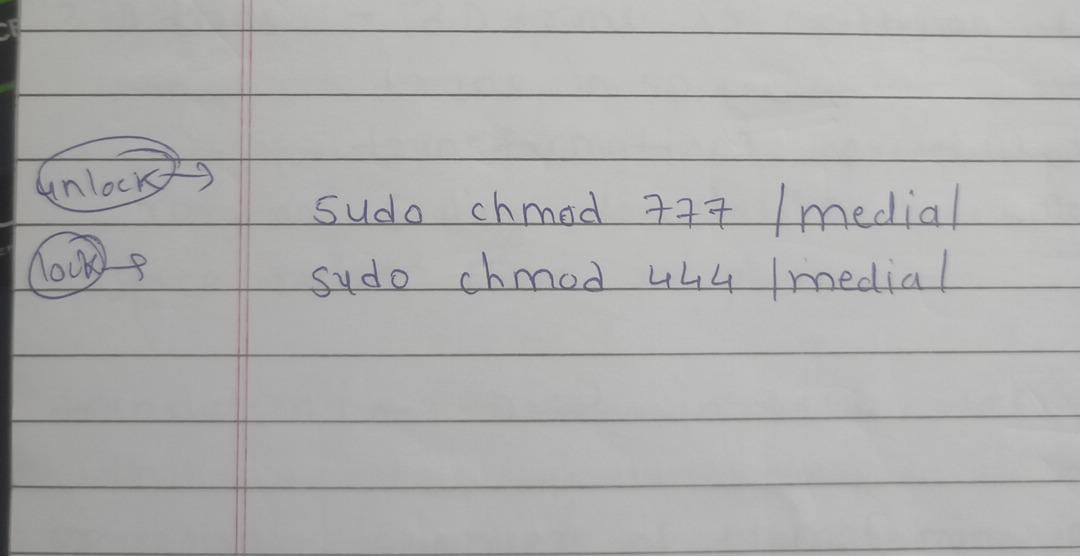 unlock → sudo chmod 777 /media/
lock → sudo chmod 444 /media/